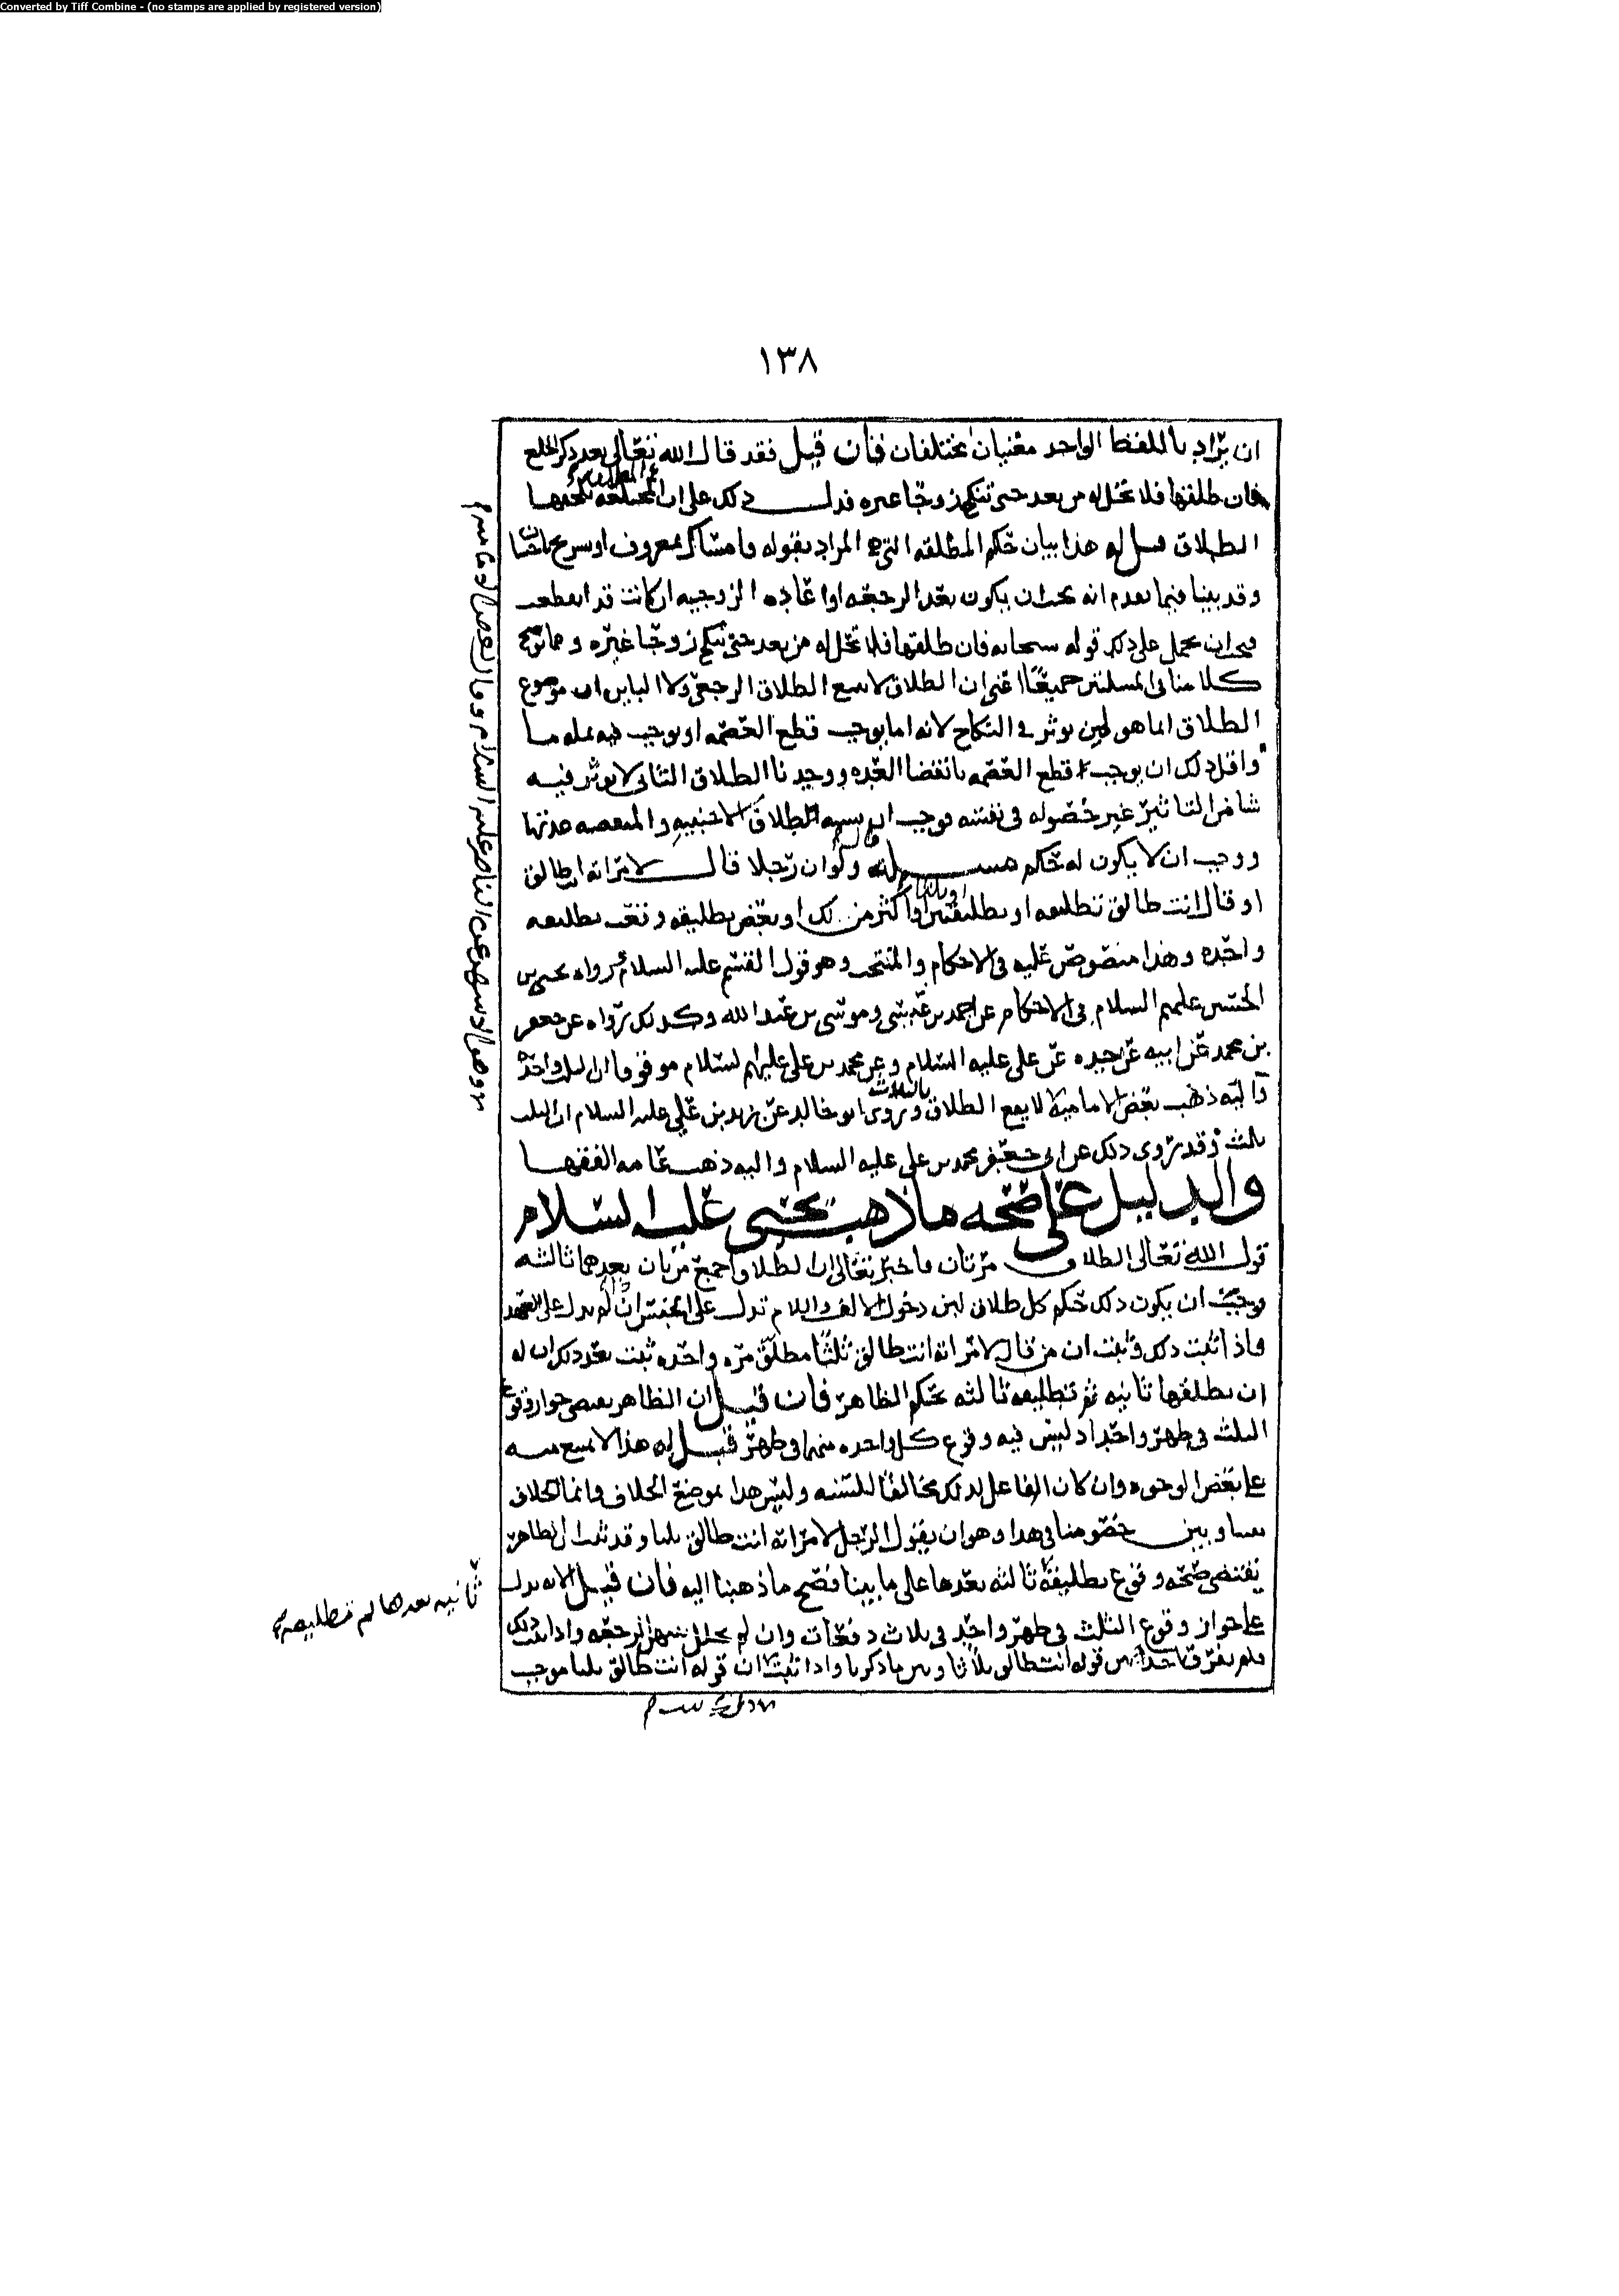 Converted by Tiff Combine - (no stamps are applied by registered version)
١٣٨
ان يراد باللفظ الواحد معنيان مختلفان فان قيل فقد قال الله تعالى بعد ذكر الخلع
فان طلقها فلا تحل له من بعد حتى تنكح زوجا غيره فدل ذلك على ان المختلعه يلحقها
الطلاق قيل له هذا بيان حكم المطلقه التي المراد بقوله فامساك بمعروف او تسريح باحسان
وقد بينا فيما تقدم انه يجب ان يكون بعد الرجعه او اعاده الزوجيه ان كانت قد انقطعت
فيجب ان يحمل على ذلك قوله سبحانه فان طلقها فلا تحل له من بعد حتى تنكح زوجا غيره ومما يوضح
كلامنا في المسلتين جميعا اعني ان الطلاق لا يتبع الطلاق الرجعي ولا البائن ان موضوع
الطلاق انما هو لان يوثر في النكاح لانه اما يوجب قطع العصمه او يوجب
واقل ذلك ان يوجب قطع العصمه بانقضا العده ووجدنا الطلاق الثاني لا يوثر فيه
شيا من التاثير غير حصوله في نفسه فوجب ان يشبه طلاق الاجنبيه والمنقضيه عدتها
ووجب ان لا يكون له حكم مسله قال ولو ان رجلا قال لامراته انت طالق
او قال انت طالق تطليقه او تطليقتين او ثلاثا او اكثر من ذلك او بعض تطليقه وقعت تطليقه
واحده وهذا منصوص عليه في الاحكام والمنتخب وهو قول القسم عليه السلام رواه يحيى بن
الحسين عليهم السلام في الاحكام عن احمد بن عيسى وموسى بن عبد الله وكذلك رواه عن جعفر
بن محمد عن ابيه عن جده عن علي عليه السلام وعن محمد بن علي عليهم السلام موقوفا ان الثلث واحده
واليه ذهب بعض الاماميه لا يقع الطلاق بالثلاث وروى ابو خالد عن زيد بن علي عليه السلام ان الثلث
ثلث وقد روى ذلك عن ابي جعفر محمد بن علي عليه السلام واليه ذهب عامه الفقها
والدليل على صحه ما ذهب يحيى عليه السلام
قول الله تعالى الطلاق مرتان فاخبر تعالى ان الطلاق اجمع مرتان بعدهما ثالثه
فوجب ان يكون ذلك حكم كل طلاق لان دخول الالف واللام تدل على الجنس ان لم يدل على العهد
فاذا ثبت ذلك وثبت ان من قال لامراته انت طالق ثلثا مطلق مره واحده ثبت بعد ذلك ان له
ان يطلقها ثانيه ثم تطليقه ثالثه بحكم الظاهر فان قيل ان الظاهر يقتضي جواز وقوع
الثلث في طهر واحد اذ ليس فيه وقوع كل واحده منها في طهر قيل له هذا لا نمتنع منه
على بعض الوجوه وان كان الفاعل لذلك مخالفا للسنه وليس هذا بموضع الخلاف وانما الخلاف
بيننا وبين خصومنا في هذا وهو ان يقول الرجل لامراته انت طالق ثلثا وقد ثبت ان الظاهر
يقتضي صحه وقوع تطليقه ثالثه بعدها على ما بينا فصح ما ذهبنا اليه فان قيل الايه تدل
على جواز وقوع الثلث في طهر واحد في ثلاث دفعات وان لم يتخلل بينهن الرجعه واذا ثبت ذلك
فلم يفرق احد بين قوله انت طالق ثلاثا وبين ما ذكرنا واذا ثبت ان قوله انت طالق ثلثا موجب
ثانيه بعدها ثم تطليقه